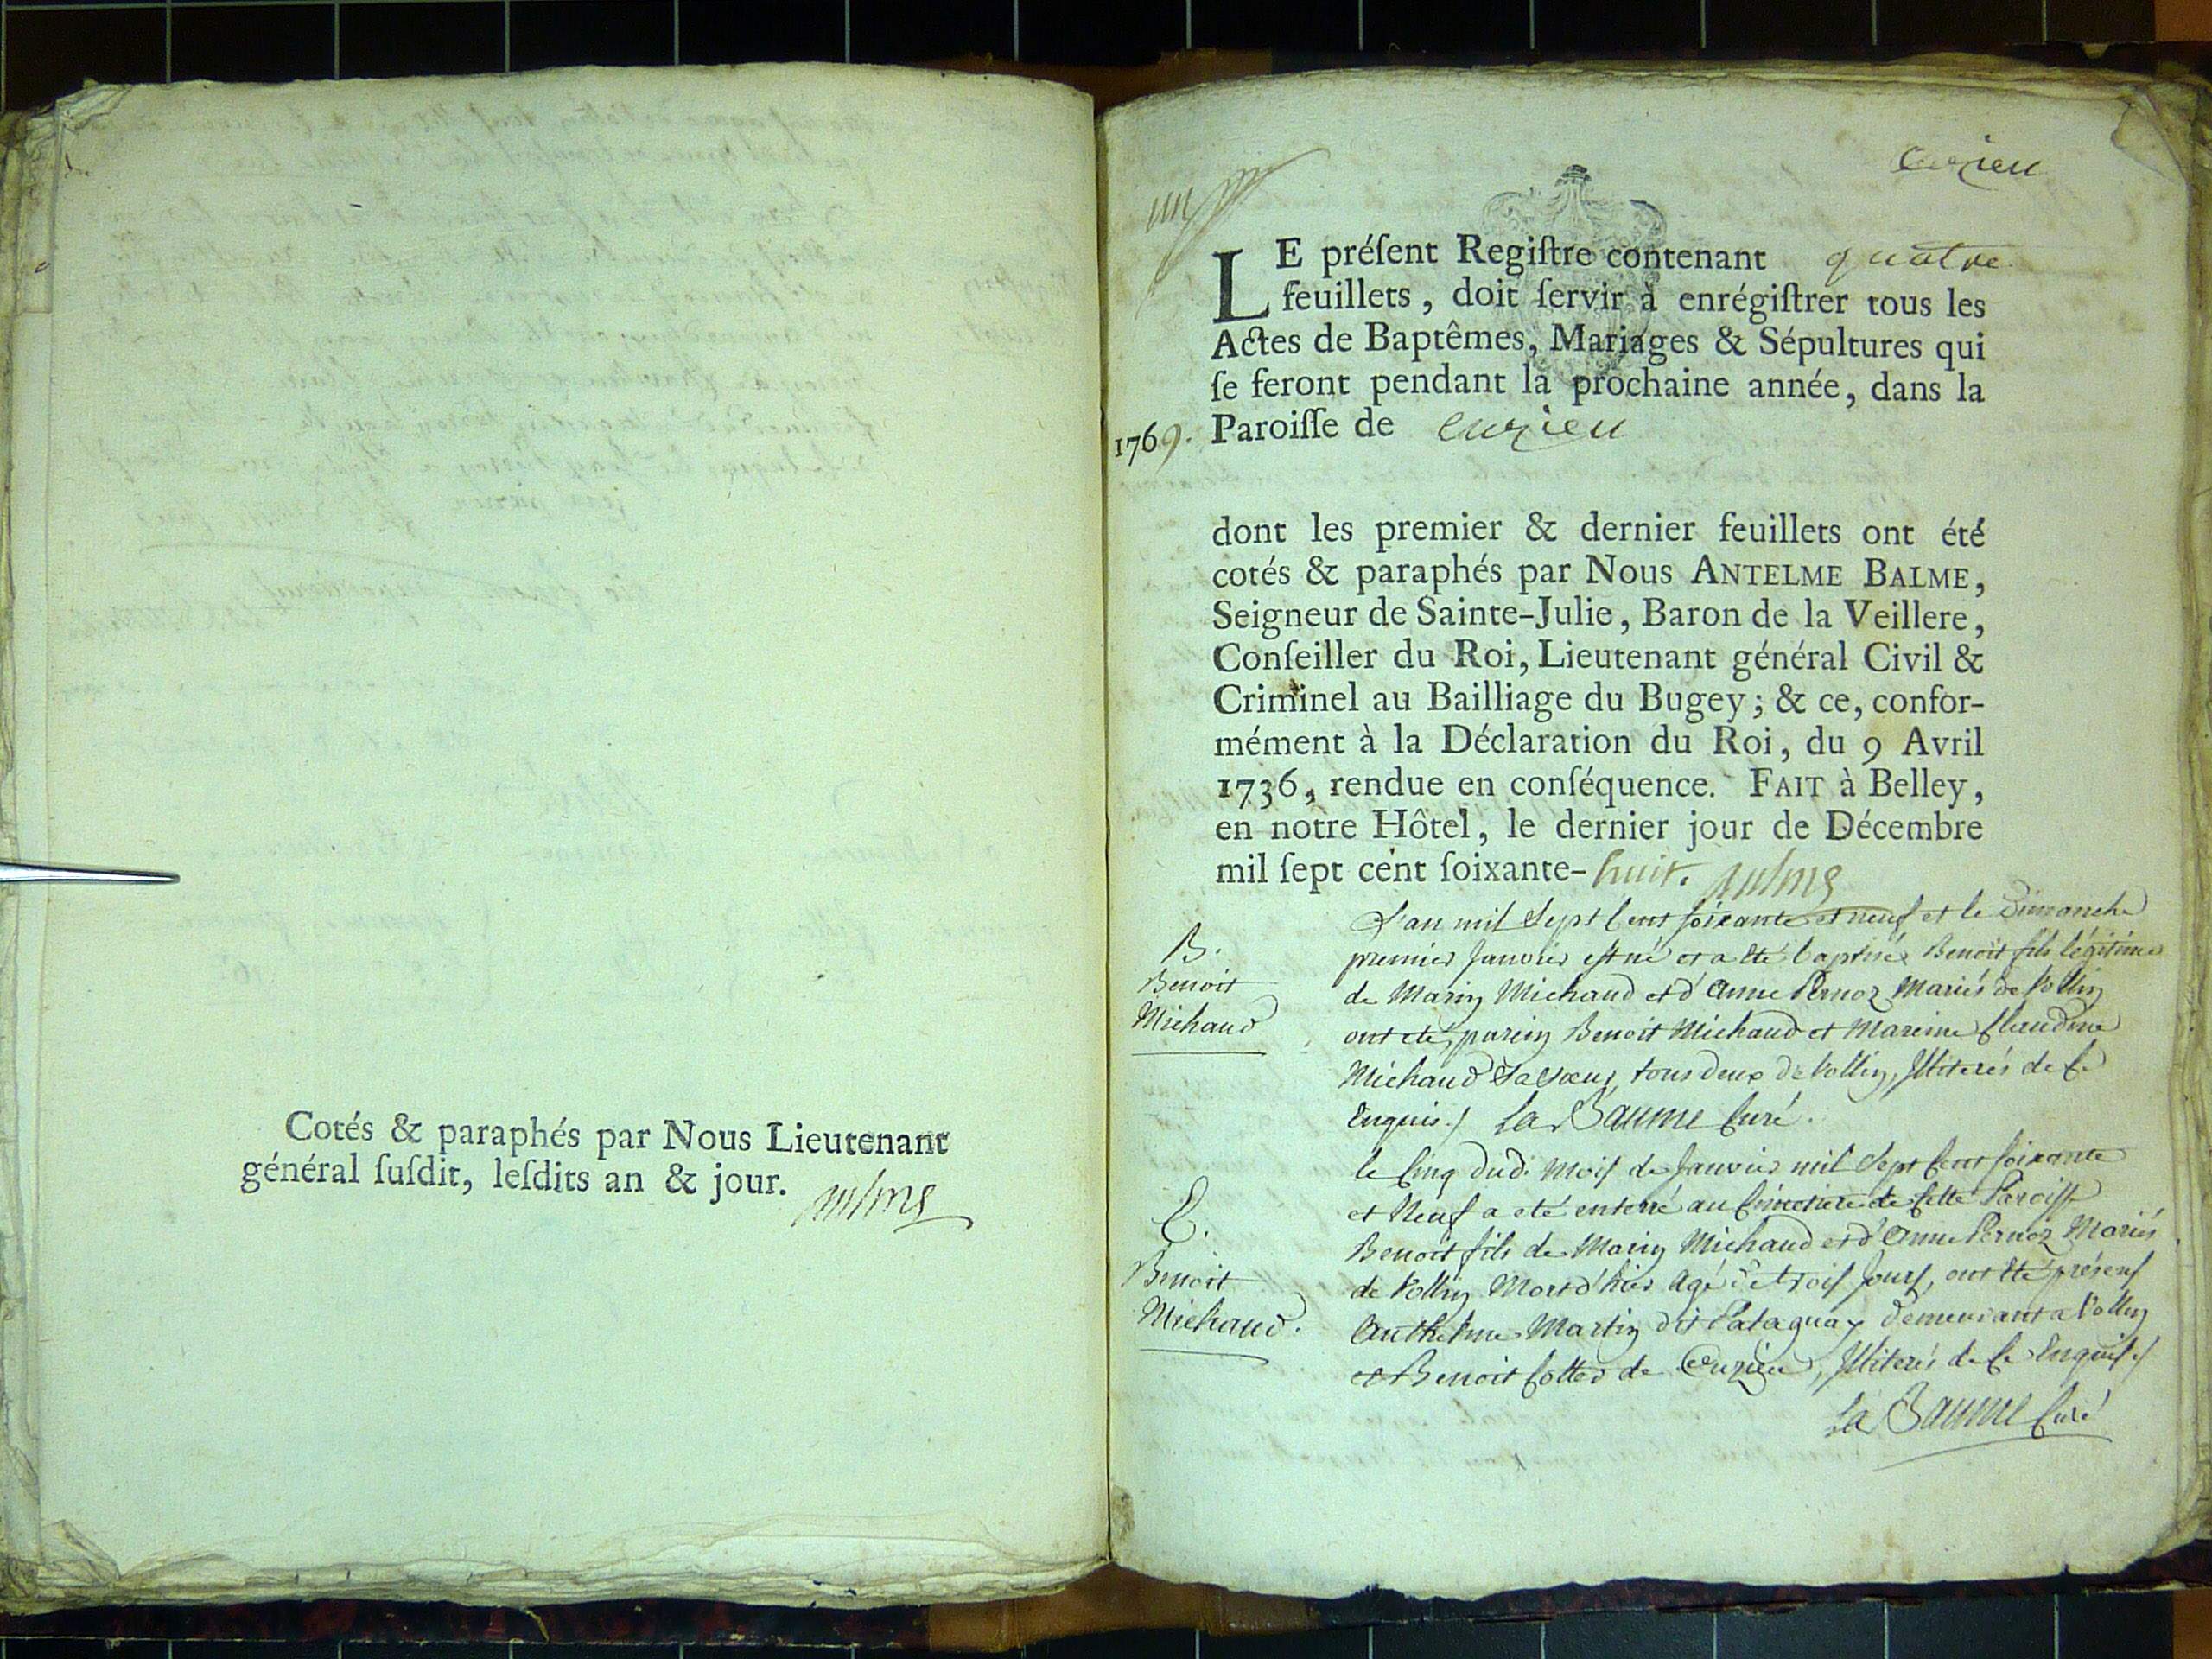 Cotés & paraphés par Nous Lieutenant
général ſuſdit, leſdits an & jour.
cuzieu
LE préſent Regiſtre contenant quatre
feuillets, doit ſervir à enrégiſtrer tous les
Actes de Baptêmes, Mariages & Sépultures qui
ſe feront pendant la prochaine année, dans la
1769. Paroiſſe de cuzieu
dont les premier & dernier feuillets ont été
cotés & paraphés par Nous ANTELME BALME,
Seigneur de Sainte-Julie, Baron de la Veillere,
Conſeiller du Roi, Lieutenant général Civil &
Criminel au Bailliage du Bugey; & ce, confor-
mément à la Déclaration du Roi, du 9 Avril
1736, rendue en conſéquence. FAIT à Belley,
en notre Hôtel, le dernier jour de Décembre
mil ſept cent ſoixante-huit.
B.
Benoit
Michaud
L'an mil Sept Cent soixante et neuf et le Dimanche
premier Janvier est né et a été baptisé Benoit fils légitime
de Marin Michaud et d'Anne Pernoz Mariés de Vollin
ont été parein Benoit Michaud et Mareine Claudine
Michaud Sa Sœur, tous deux de Vollin, Illiterés de Ce
Enquis./ La Baume Curé.
E.
Benoit
Michaud.
le Cinq dud: Mois de Janvier mil Sept Cent soixante
et Neuf a eté enterré au Cimetiere de Cette Paroisse
Benoit fils de Marin Michaud et d'Anne Pernoz Mariés
de Vollin Mort d'hier Agé de trois Jours, ont été présens
Anthelme Martin dit Pataguay demeurant a Vollin
et Benoit Cottet de Cuzieu, Illiterés de Ce Enquis./
La Baume Curé